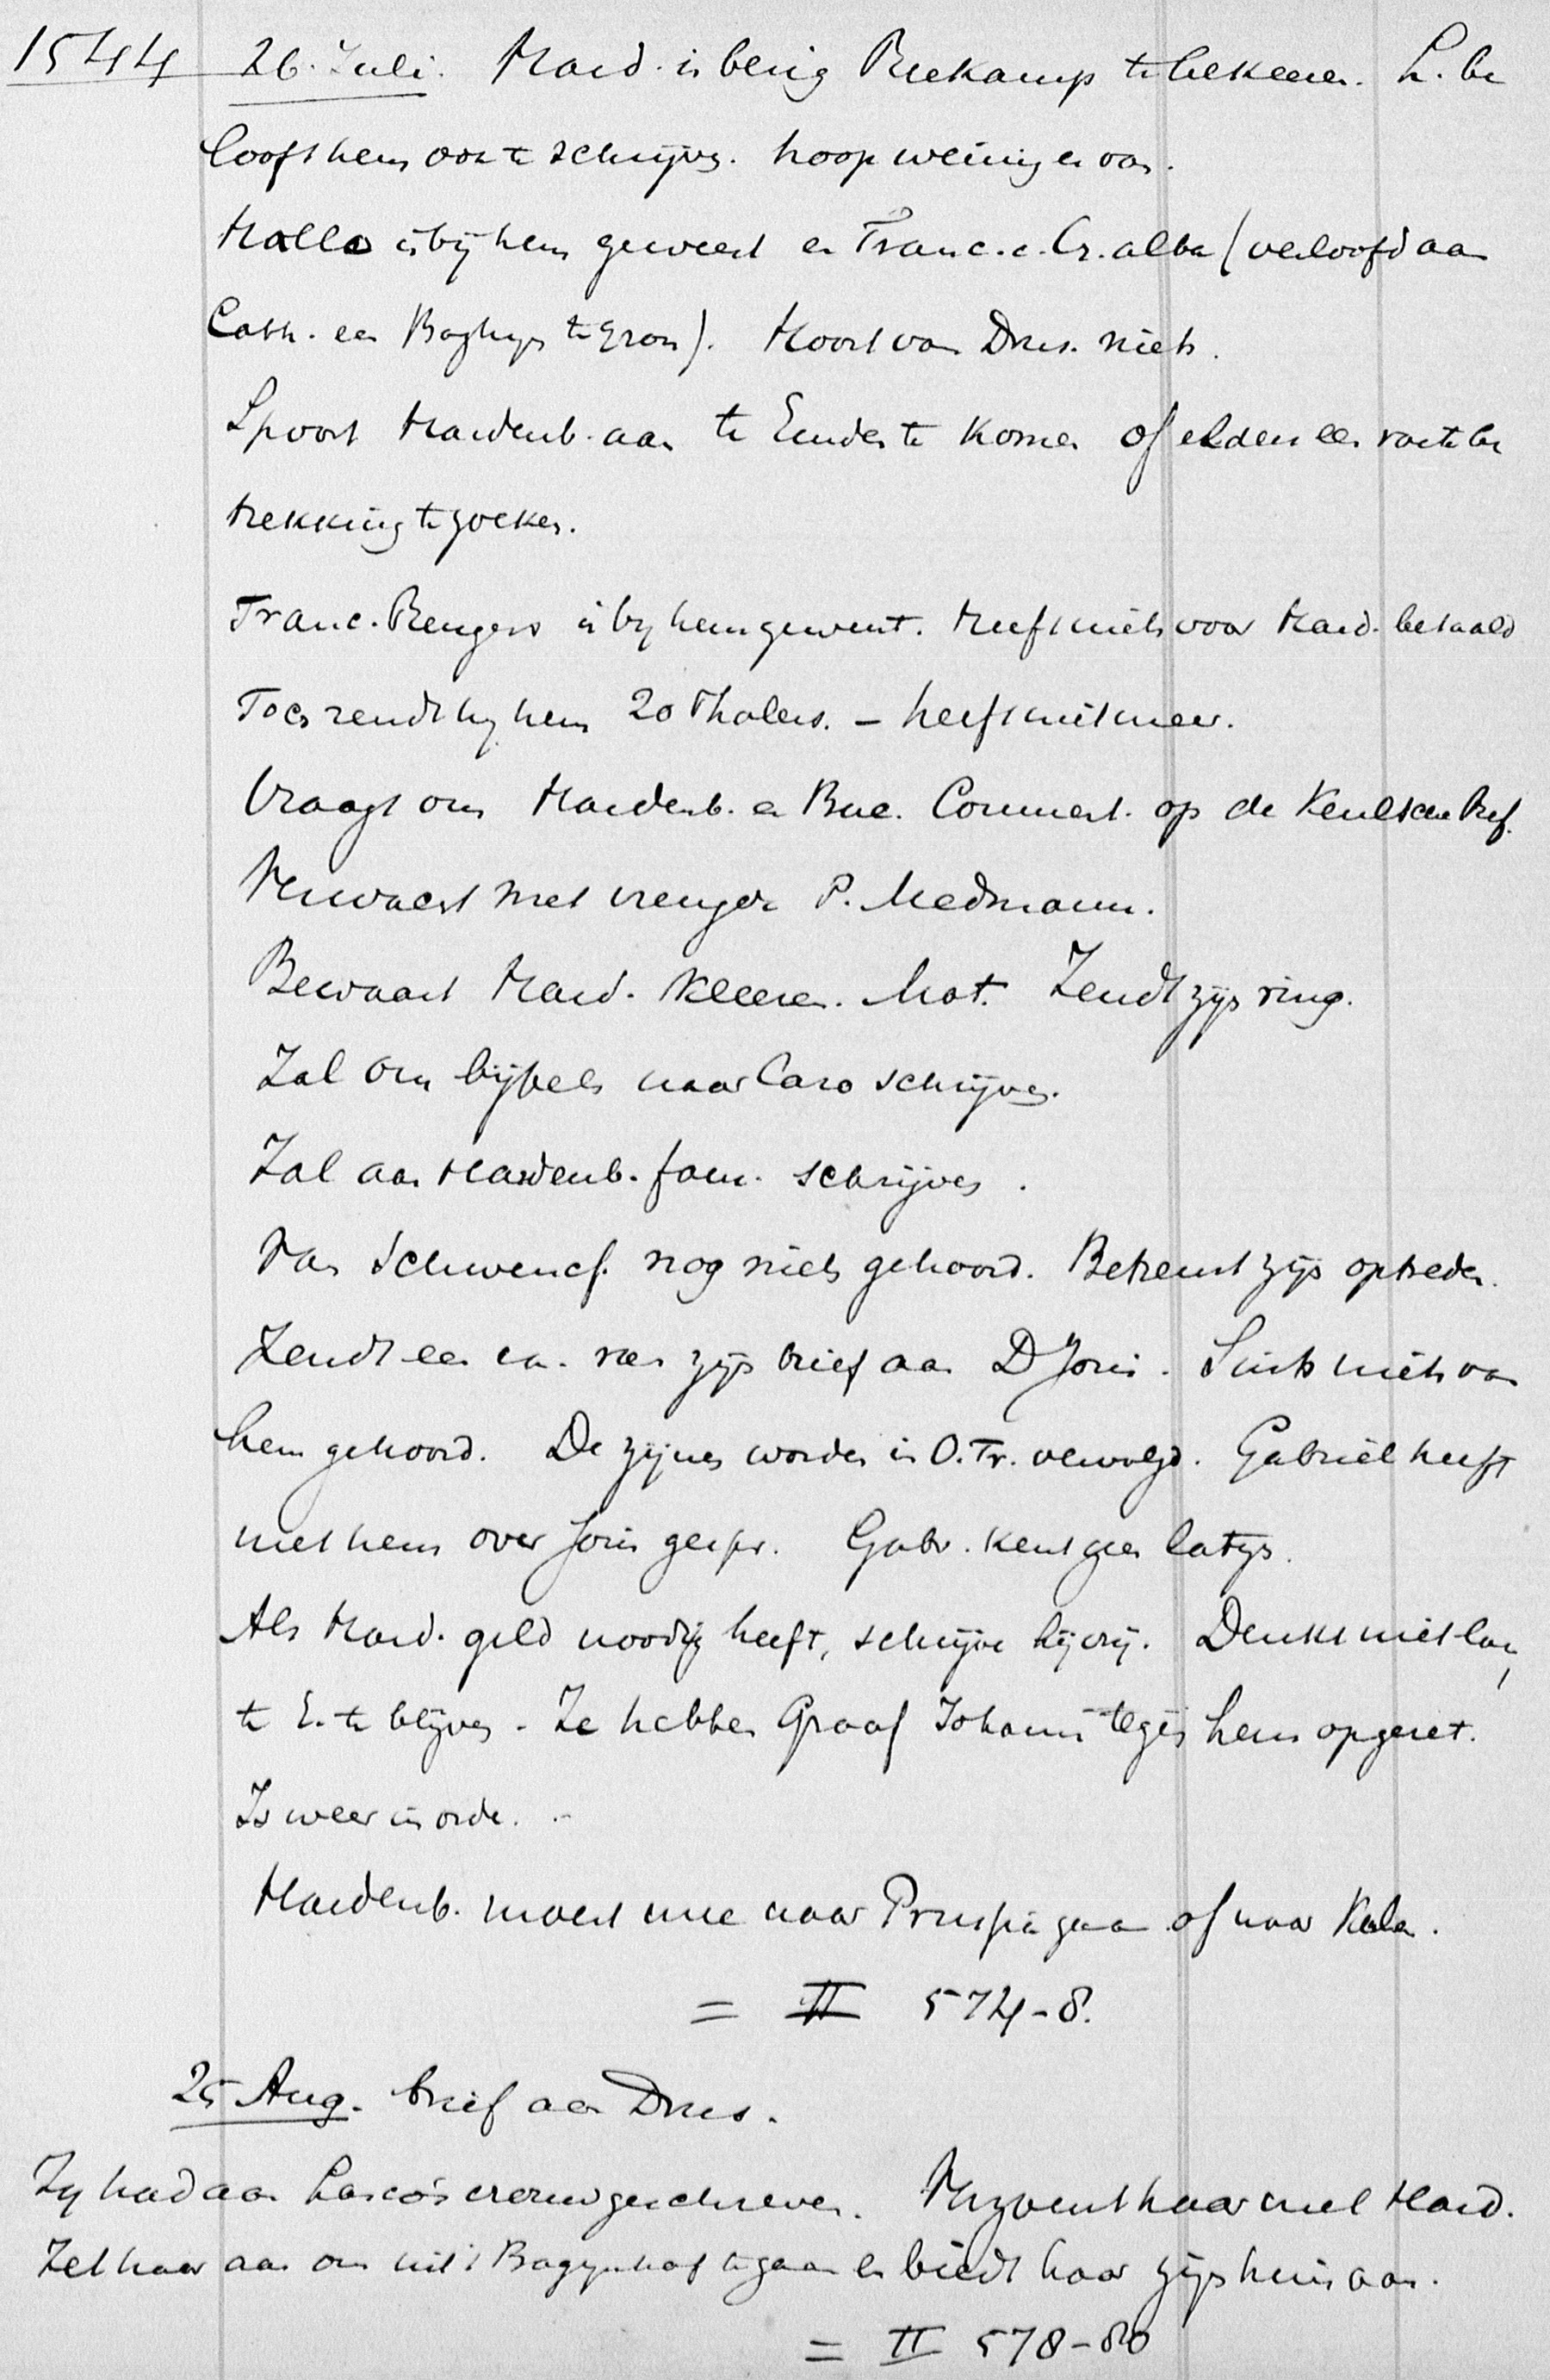 1544 26. Juli. Hard. is bezig Reekamp te bekeeren. L. be
looft hem ook te schrijven. hoop weinig er van.
Halle is bij hem geweest en Franc. c. Cr. alba (verloofd aan
Cath. een Bagijn te Gron). Hoort van Drus. niets.
Spoort Hardenb. aan te Emden te komen of elders een vaste be
trekking te zoeken.
Franc. Rengers is by hem geweest. Heeft niets voor Hard. betaald
Toen zendt hy hem 20 Thalers. – heeft niet meer.
Vraagt om Hardenb. en Buc. Comment. op de Keulsche Ref.
Verwacht met vreugde P. Medmann.
Bewaart Hard. kleeren. Mat. Zendt zijn ring.
Zal om bijbels naar Caro schrijven.
Zal aan Hardenb. fam. schrijven.
Van Schwencf. nog niets gehoord. Betreurt zijn optreden.
Zendt een ex. van zijn brief aan D Joris. Sinds niets van
hem gehoord. De zijnen worden in O. Fr. vervolgd. Gabriel heeft
met hem over Joris gespr. Gabr. kent geen latijn.
Als Hard. geld noodig heeft, schrijve hij vrij. Denkt niet lang
te E. te blijven. Ze hebben Graaf Johann tegen hem opgezet.
Is weer in orde. -
Hardenb. moest nu naar Prussia gaan of naar Keulen.
= II 574-8.
25 Aug. brief aan Drus.
Zy had aan Lasco's vrouw geschreven. Verzoent haar met Hard.
Zet haar aan om uit 't Bagynhof te gaan en biedt haar zijn huis aan.
= II 578-80